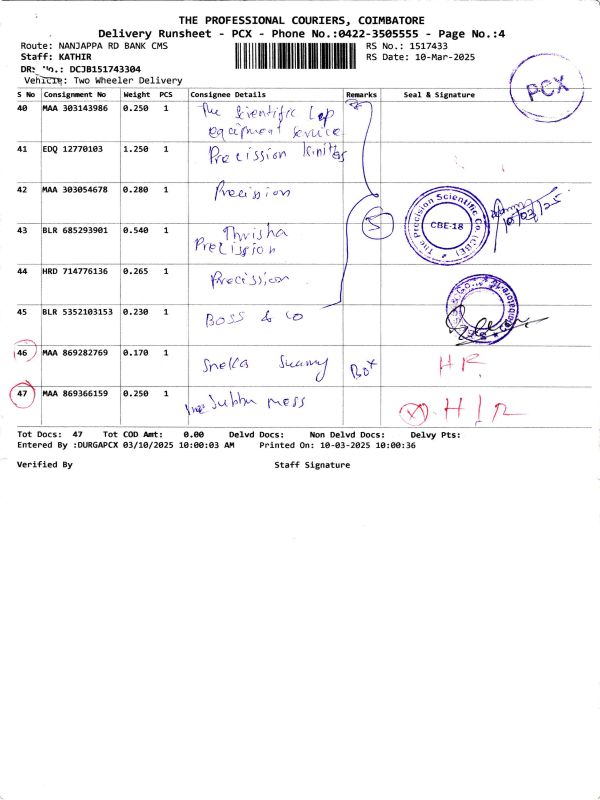 THE PROFESSIONAL COURIERS, COIMBATORE
Delivery Runsheet - PCX - Phone No.:0422-3505555 - Page No.:4
Route: NANJAPPA RD BANK CMS
RS No.: 1517433
Staff: KATHIR
RS Date: 10-Mar-2025
DRS No.: DCJB151743304
Vehicle: Two Wheeler Delivery
PCX
S No Consignment No Weight PCS Consignee Details Remarks Seal & Signature
40 MAA 303143986 0.250 1 The Scientific Lap
equipment service
41 EDQ 12770103 1.250 1 Precission
42 MAA 303054678 0.280 1 Precission
The Precision Scientific Co. (CBE)
CBE-18
10/03/25
43 BLR 685293901 0.540 1 Thrisha
Precission
5
44 HRD 714776136 0.265 1 Precission
45 BLR 5352103153 0.230 1 BOSS & CO
46 MAA 869282769 0.170 1 Snella Swamy Box HR
47 MAA 869366159 0.250 1 Subbu mess
Tot Docs: 47 Tot COD Amt: 0.00 Delvd Docs: Non Delvd Docs: Delvy Pts:
Entered By :DURGAPCX 03/10/2025 10:00:03 AM Printed On: 10-03-2025 10:00:36
Verified By Staff Signature